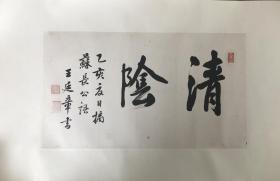 清陰
乙亥夏日摘
蘇長公語
王廷韋書